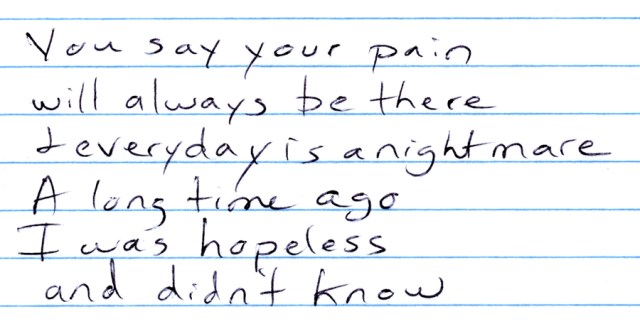 You say your pain
will always be there
& everyday is a nightmare
A long time ago
I was hopeless
and didn't know